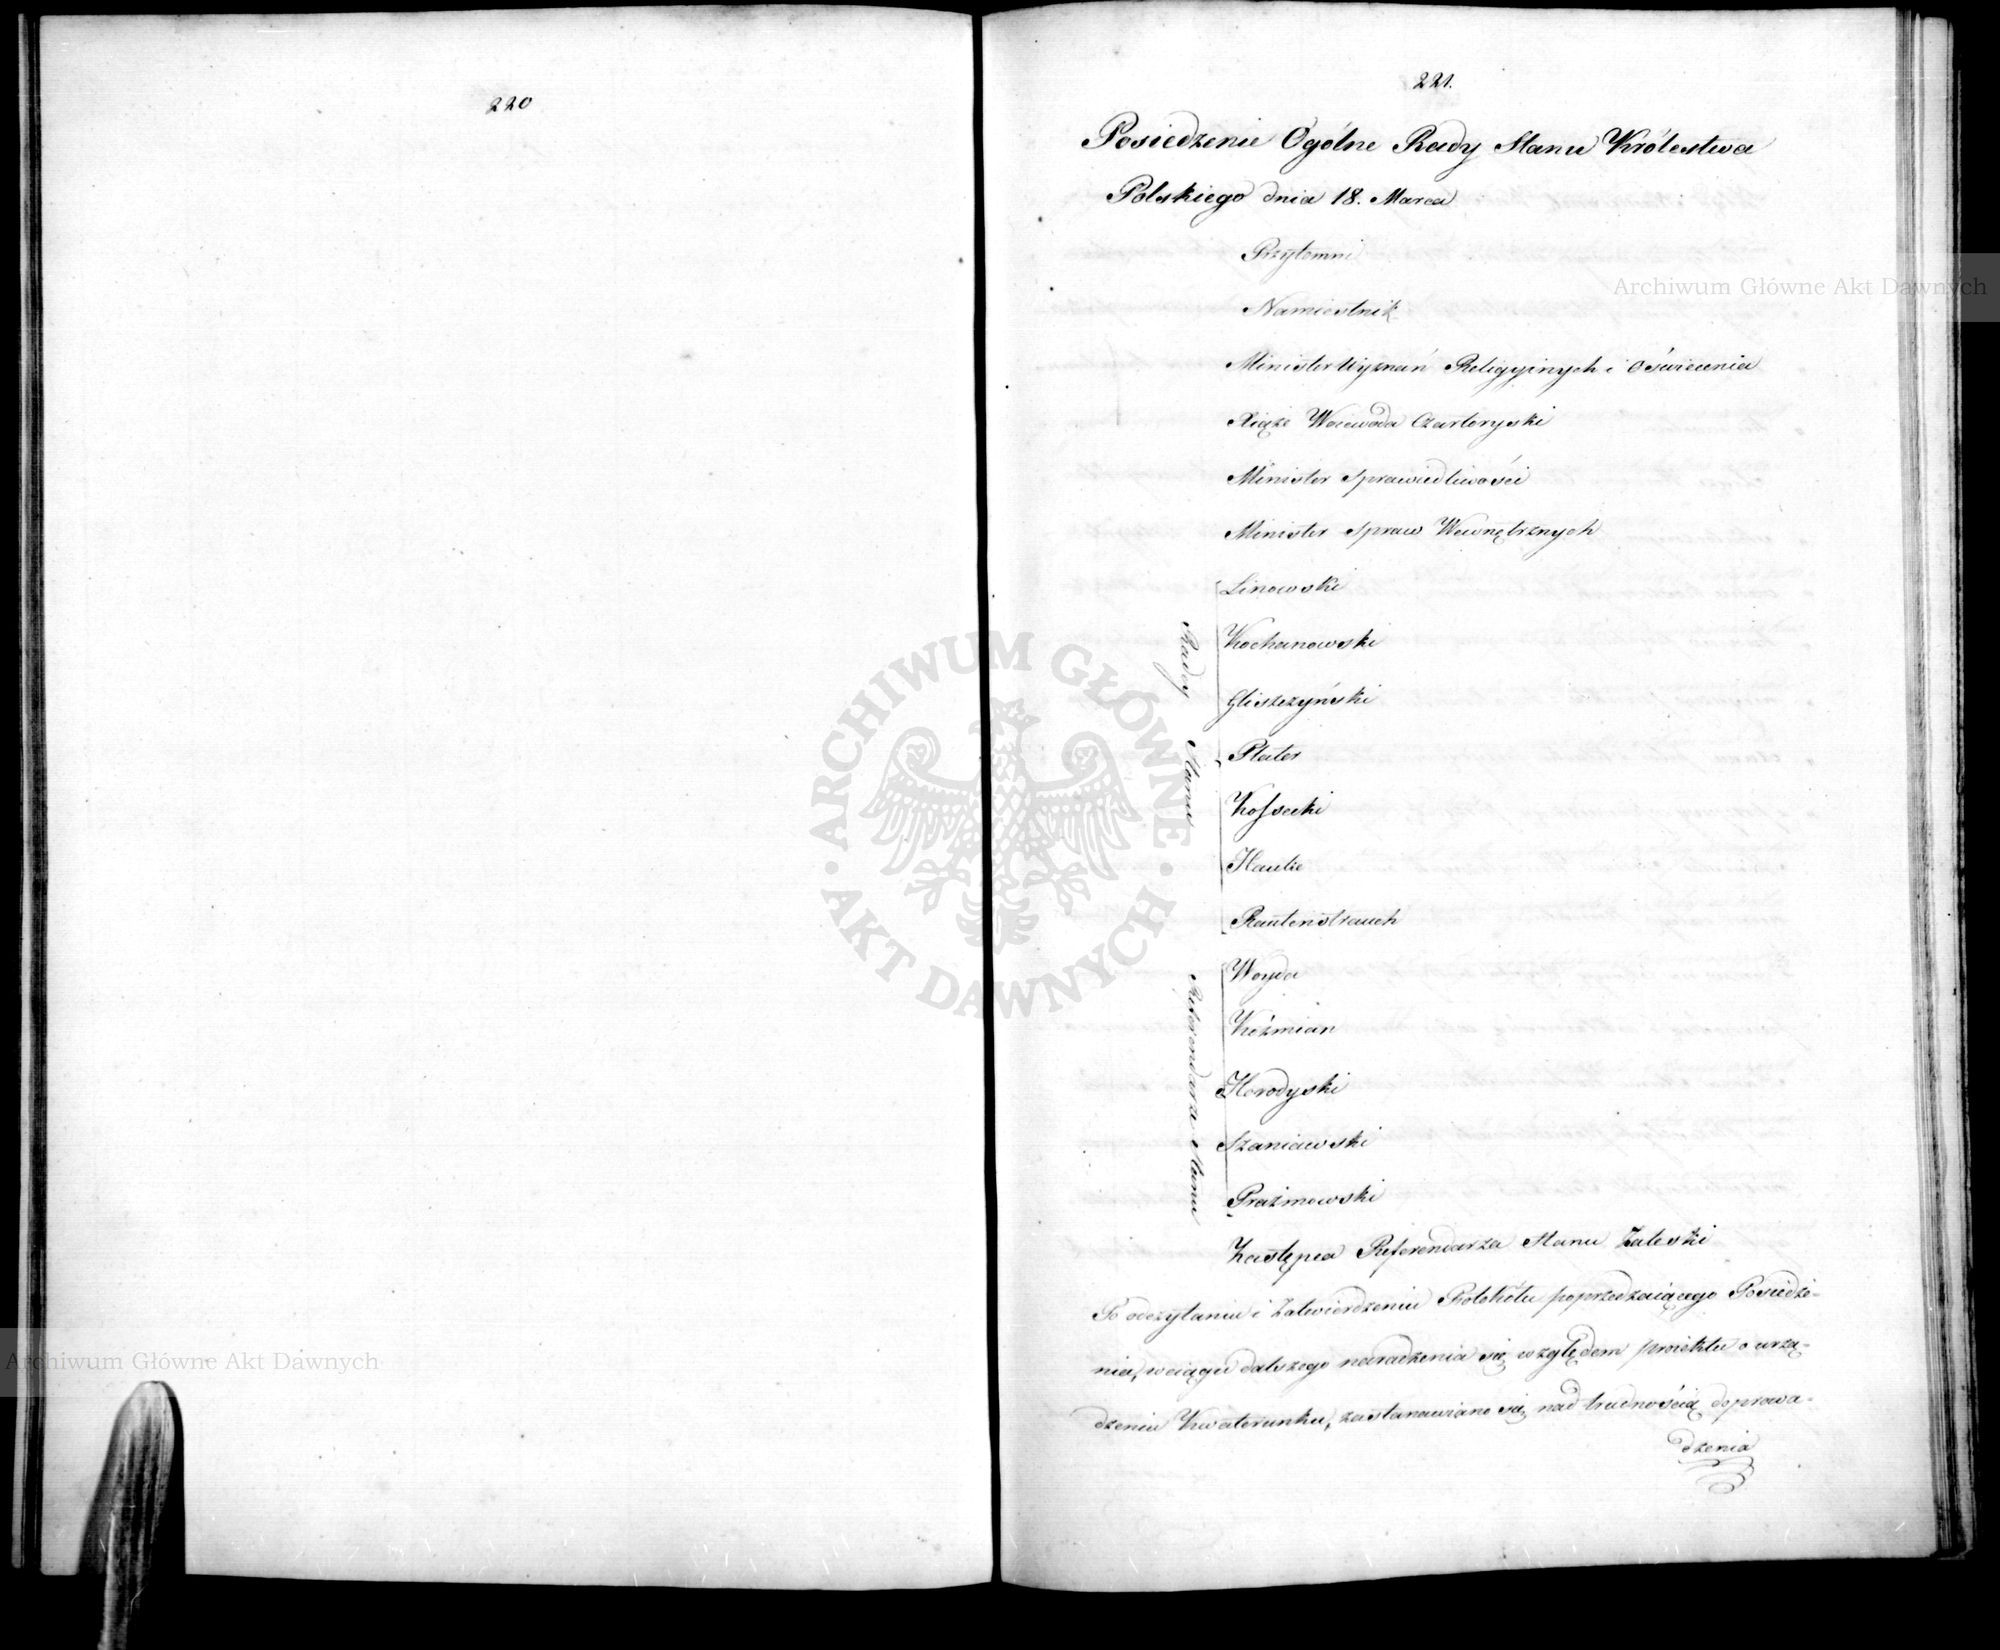 220
221.
Posiedzenie Ogólne Rady Stanu Królestwa
Polskiego dnia 18. Marca
Przytomni
Namiestnik
Minister Wyznań Religyinych i Oświecenia
Xiąże Woiewoda Czartoryski
Minister Sprawiedliwości
Minister Spraw Wewnętrznych
Rady Stanu
Linowski
Kochanowski
Gliszczyński
Plater
Kossecki
Hauke
Rautenstrauch
Referendarze Stanu
Woyda
Koźmian
Horodyski
Szaniawski
Prażmowski
Zastępca Referendarza Stanu Zaleski
Po odczytaniu i Zatwierdzeniu Protokółu poprzedzaiącego Posiedze-
nia, w ciągu dalszego naradzenia się względem proiektu o urzą-
dzeniu Kwaterunku, zastanawiano się nad trudnością doprowa-
dzenia
Archiwum Główne Akt Dawnych
ARCHIWUM GŁÓWNE AKT DAWNYCH
Archiwum Główne Akt Dawnych